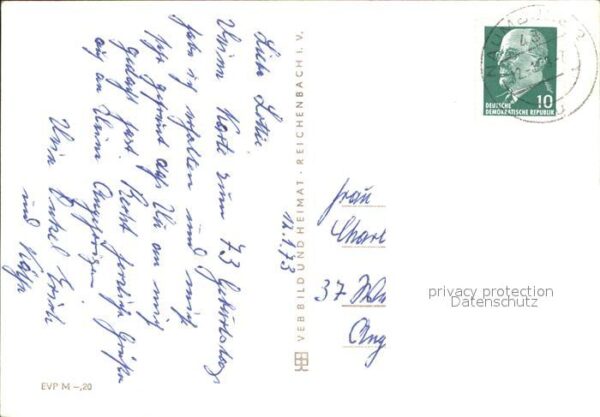 Liebe Lottie
Deine Karte zum 73 Geburtstag
habe ich erhalten und mich
sehr gefreut daß Du an mich
gedacht hast. Recht herzliche Grüße
auch an Deine Angehörigen
Dein Onkel Erich
und Käthe
12.1.73
VEB BILD UND HEIMAT · REICHENBACH I. V.
EVP M –,20
DEUTSCHE
DEMOKRATISCHE REPUBLIK
10
Frau
Charl
37
Ang
privacy protection
Datenschutz